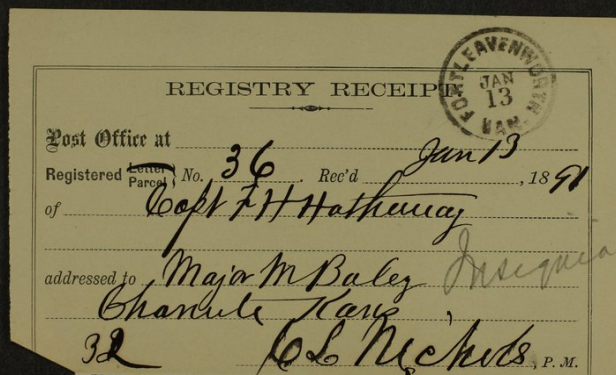 FORT LEAVENWORTH
JAN
13
KAN.
REGISTRY RECEIPT
Post Office at
Registered Letter Parcel } No. 36. Rec'd Jan 13, 1891
of Capt F H Hathaway
addressed to Major M Baley Insignia
Chanute Kans
32 C L Nichols, P. M.